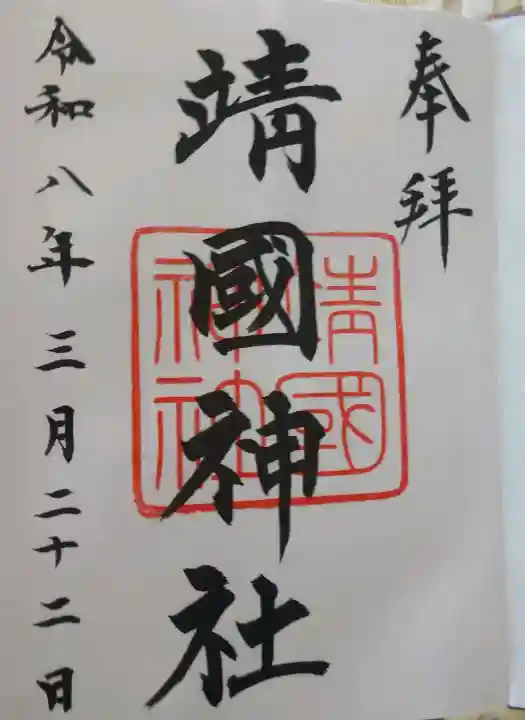 奉拝
靖國神社
靖國
神社
令和八年三月二十二日